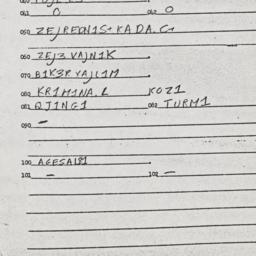 041 0 042 0
050 ZEJREDN1S+KADA.G+
060 ZEJ3 VAJN1K
070 B1K3R VAJL1M
080 KR1M1NA.L KOZ1
081 QJ1NG1 082 TURM1
090 -
100 AGESA181
101 - 102 -